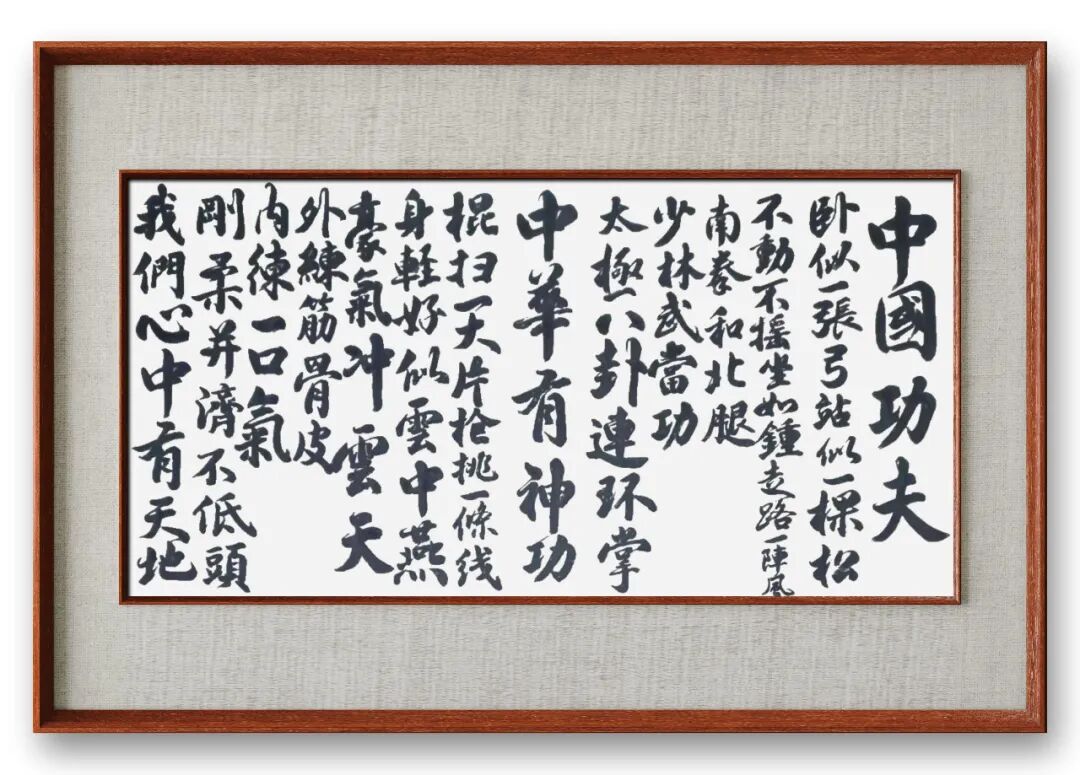 中國功夫
卧似一張弓站似一棵松
不動不摇坐如鍾走路一陣風
南拳和北腿
少林武當功
太極八卦連环掌
中華有神功
棍扫一大片抢挑一條线
身軽好似雲中燕
豪氣冲雲天
外練筋骨皮
内練一口氣
剛柔并濟不低頭
我們心中有天地